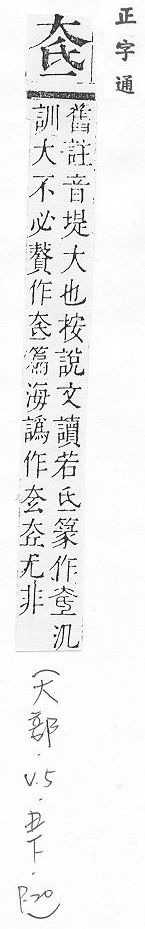 正字通
奃
舊註音堤大也按說文讀若氐篆作汎
訓大不必贅作奃篇海譌作尤非
(大部．V.5．丑下．P.20)